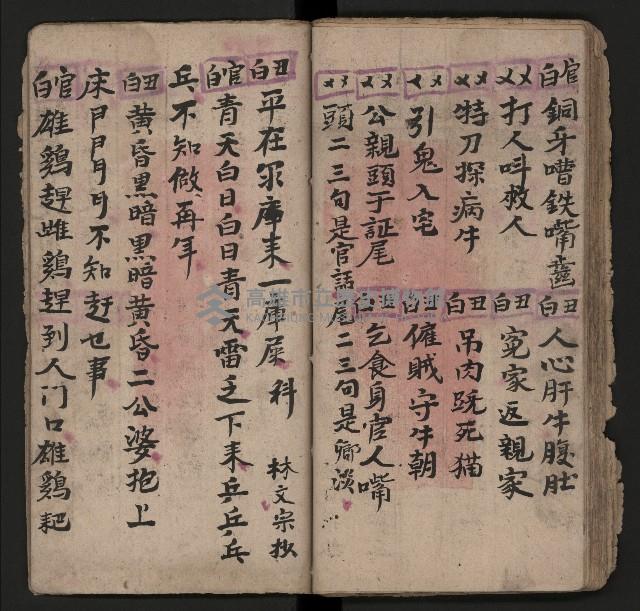 官白 銅牙嘈鉄嘴齒 丑白 人心肝牛腹肚
〤〤 打人呌救人 丑白 寃家返親家
〤〤 特刀探病牛 丑白 吊肉跣死猫
〤〤 引鬼入宅 丑白 僱賊守牛朝
〤〤 公親頭于証尾 乞食身官人嘴
〤〤 頭二三句是官話尾二三句是鄉淡
丑白 平在眾席未一庫屎 科 林文宗抄
官白 青天白日白日青天雷乏下來乒乒乓
兵不知做再年
丑白 黃昏黑暗黑暗黃昏二公婆抱上
床尸尸不知赶乜事
官白 雄鷄趕雌鷄趕到人门口雄鷄耙
高雄市立歷史博物館
KAOHSIUNG MUSEUM OF HISTORY